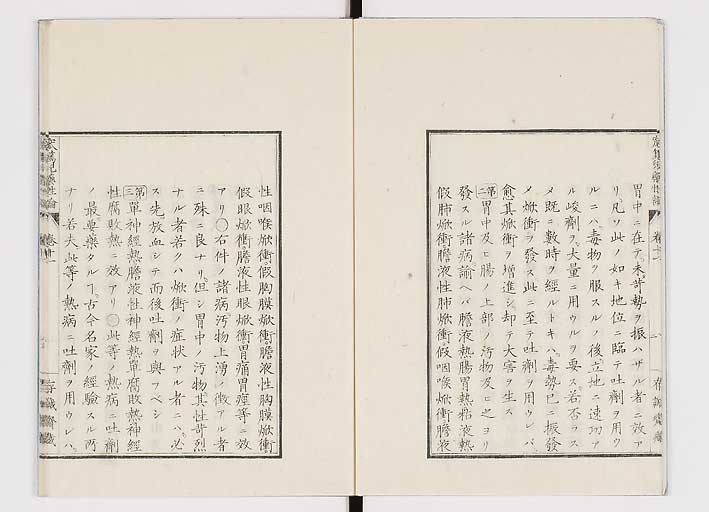 胃中ニ在テ未苛勢ヲ振ハザル者ニ效ア
リ凡ソ此ノ如キ地位ニ臨テ吐劑ヲ用ウ
ルニハ毒物ヲ服スルノ後立地ニ速功ア
ル峻劑ヲ大量ニ用ウルヲ要ス若否ラス
メ既ニ數時ヲ經ルトキハ毒勢巳ニ振發
メ焮衝ヲ發ス此ニ至テ吐劑ヲ用ウレバ
愈其焮衝ヲ增進シ却テ大害ヲ生ス
第二胃中及ヒ腸ノ上部ノ汚物及ヒ之ヨリ
發スル諸病諭ヘバ膽液熱腸胃熱粘液熱
假肺焮衝膽液性肺焮衝假咽喉焮衝膽液
性咽喉焮衝假胸膜焮衝膽液性胸膜焮衝
假眼焮衝膽液性眼焮衝胃痛胃痙等ニ效
アリ○右件ノ諸病汚物上湧ノ徴アル者
ニ殊ニ良ナリ但シ胃中ノ汚物其性苛烈
ナル者若クハ焮衝ノ症状アル者ニハ必
ス先放血シテ而後吐劑ヲ與フベシ
第三單神經熱膽液性神經熱單腐敗熱神經
性腐敗熱ニ效アリ○此等ノ熱病ニ吐劑
ノ最要藥タルヿ古今名家ノ經驗スル所
ナリ若夫此等ノ熱病ニ吐劑ヲ用ウレハ